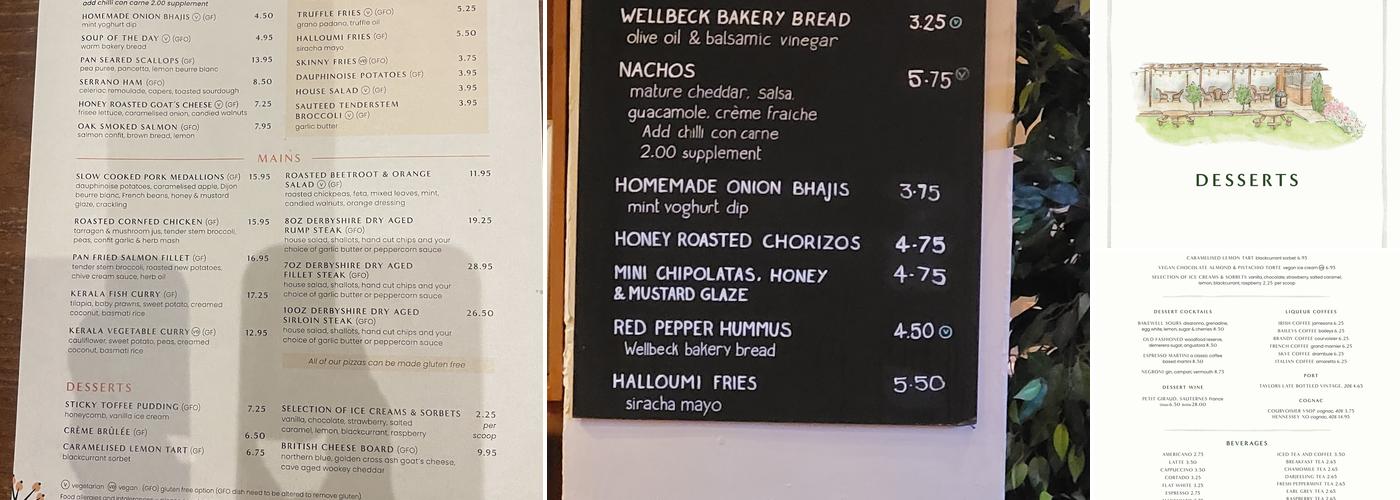 add chilli con carne 2.00 supplement
HOMEMADE ONION BHAJIS V (GF) 4.50
mint yoghurt dip
SOUP OF THE DAY V (GFO) 4.95
warm bakery bread
PAN SEARED SCALLOPS (GF) 13.95
pea puree, pancetta, lemon beurre blanc
SERRANO HAM (GFO) 8.50
celeriac remoulade, capers, toasted sourdough
HONEY ROASTED GOAT'S CHEESE V (GF) 7.25
frisee lettuce, caramelised onion, candied walnuts
OAK SMOKED SALMON (GFO) 7.95
salmon confit, brown bread, lemon
TRUFFLE FRIES V (GFO) 5.25
grano padano, truffle oil
HALLOUMI FRIES (GF) 5.50
siracha mayo
SKINNY FRIES VE (GFO) 3.75
DAUPHINOISE POTATOES (GF) 3.95
HOUSE SALAD V (GF) 3.95
SAUTEED TENDERSTEM 3.95
BROCCOLI V (GF)
garlic butter
MAINS
SLOW COOKED PORK MEDALLIONS (GF) 15.95
dauphinoise potatoes, caramelised apple, Dijon
beurre blanc, French beans, honey & mustard
glaze, crackling
ROASTED CORNFED CHICKEN (GF) 15.95
tarragon & mushroom jus, tender stem broccoli,
peas, confit garlic & herb mash
PAN FRIED SALMON FILLET (GF) 16.95
tender stem broccoli, roasted new potatoes,
chive cream sauce, herb oil
KERALA FISH CURRY (GF) 17.25
tilapia, baby prawns, sweet potato, creamed
coconut, basmati rice
KERALA VEGETABLE CURRY VE (GF) 12.95
cauliflower, sweet potato, peas, creamed
coconut, basmati rice
ROASTED BEETROOT & ORANGE 11.95
SALAD V (GF)
roasted chickpeas, feta, mixed leaves, mint,
candied walnuts, orange dressing
8OZ DERBYSHIRE DRY AGED 19.25
RUMP STEAK (GFO)
house salad, shallots, hand cut chips and your
choice of garlic butter or peppercorn sauce
7OZ DERBYSHIRE DRY AGED 28.95
FILLET STEAK (GFO)
house salad, shallots, hand cut chips and your
choice of garlic butter or peppercorn sauce
10OZ DERBYSHIRE DRY AGED 26.50
SIRLOIN STEAK (GFO)
house salad, shallots, hand cut chips and your
choice of garlic butter or peppercorn sauce
All of our pizzas can be made gluten free
DESSERTS
STICKY TOFFEE PUDDING (GFO) 7.25
honeycomb, vanilla ice cream
CRÈME BRÛLÉE (GF) 6.50
CARAMELISED LEMON TART (GF) 6.75
blackcurrant sorbet
SELECTION OF ICE CREAMS & SORBETS 2.25
vanilla, chocolate, strawberry, salted per
caramel, lemon, blackcurrant, raspberry scoop
BRITISH CHEESE BOARD (GFO) 9.95
northern blue, golden cross ash goat's cheese,
cave aged wookey cheddar
V vegetarian VE vegan (GFO) gluten free option (GFO dish need to be altered to remove gluten)
Food allergies and intolerances
WELLBECK BAKERY BREAD 3.25 V
olive oil & balsamic vinegar
NACHOS 5.75 V
mature cheddar, salsa,
guacamole, crème fraiche
Add chilli con carne
2.00 supplement
HOMEMADE ONION BHAJIS 3.75
mint yoghurt dip
HONEY ROASTED CHORIZOS 4.75
MINI CHIPOLATAS, HONEY 4.75
& MUSTARD GLAZE
RED PEPPER HUMMUS 4.50 V
Wellbeck bakery bread
HALLOUMI FRIES 5.50
siracha mayo
DESSERTS
CARAMELISED LEMON TART blackcurrant sorbet 6.95
VEGAN CHOCOLATE ALMOND & PISTACHIO TORTE vegan ice cream VE 6.95
SELECTION OF ICE CREAMS & SORBETS vanilla, chocolate, strawberry, salted caramel,
lemon, blackcurrant, raspberry 2.25 per scoop
DESSERT COCKTAILS
BAKEWELL SOURS disaronno, grenadine,
egg white, lemon, sugar & cherries 8.50
OLD FASHIONED woodford reserve,
demerara sugar, angostura 8.50
ESPRESSO MARTINI a classic coffee
based martini 8.50
NEGRONI gin, campari, vermouth 8.75
DESSERT WINE
PETIT GIRAUD, SAUTERNES France
6.50 28.00
LIQUEUR COFFEES
IRISH COFFEE jamesons 6.25
BAILEYS COFFEE baileys 6.25
BRANDY COFFEE courvoisier 6.25
FRENCH COFFEE grand marnier 6.25
SKYE COFFEE drambuie 6.25
ITALIAN COFFEE amaretto 6.25
PORT
TAYLORS LATE BOTTLED VINTAGE, 20% 4.65
COGNAC
COURVOISIER VSOP cognac, 40% 3.75
HENNESSEY XO cognac, 40% 14.95
BEVERAGES
AMERICANO 2.75
LATTE 3.50
CAPPUCCINO 3.50
CORTADO 3.25
FLAT WHITE 3.25
ESPRESSO 2.75
ICED TEA AND COFFEE 3.50
BREAKFAST TEA 2.65
CHAMOMILE TEA 2.65
DARJEELING TEA 2.65
FRESH PEPPERMINT TEA 2.65
EARL GREY TEA 2.65
RASPBERRY TEA 2.65